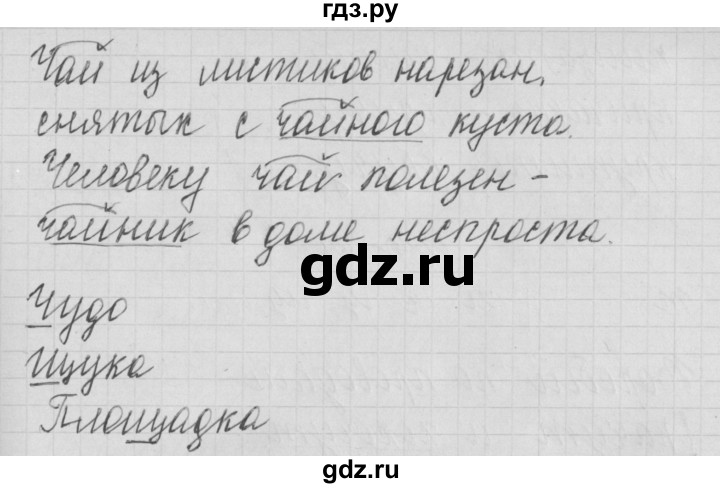 гдз.ру
Чай из листиков нарезан,
снятых с чайного куста.
Человеку чай полезен -
чайник в доме неспроста.
gdz.ru
Чудо
Щука
Площадка
gdz.ru